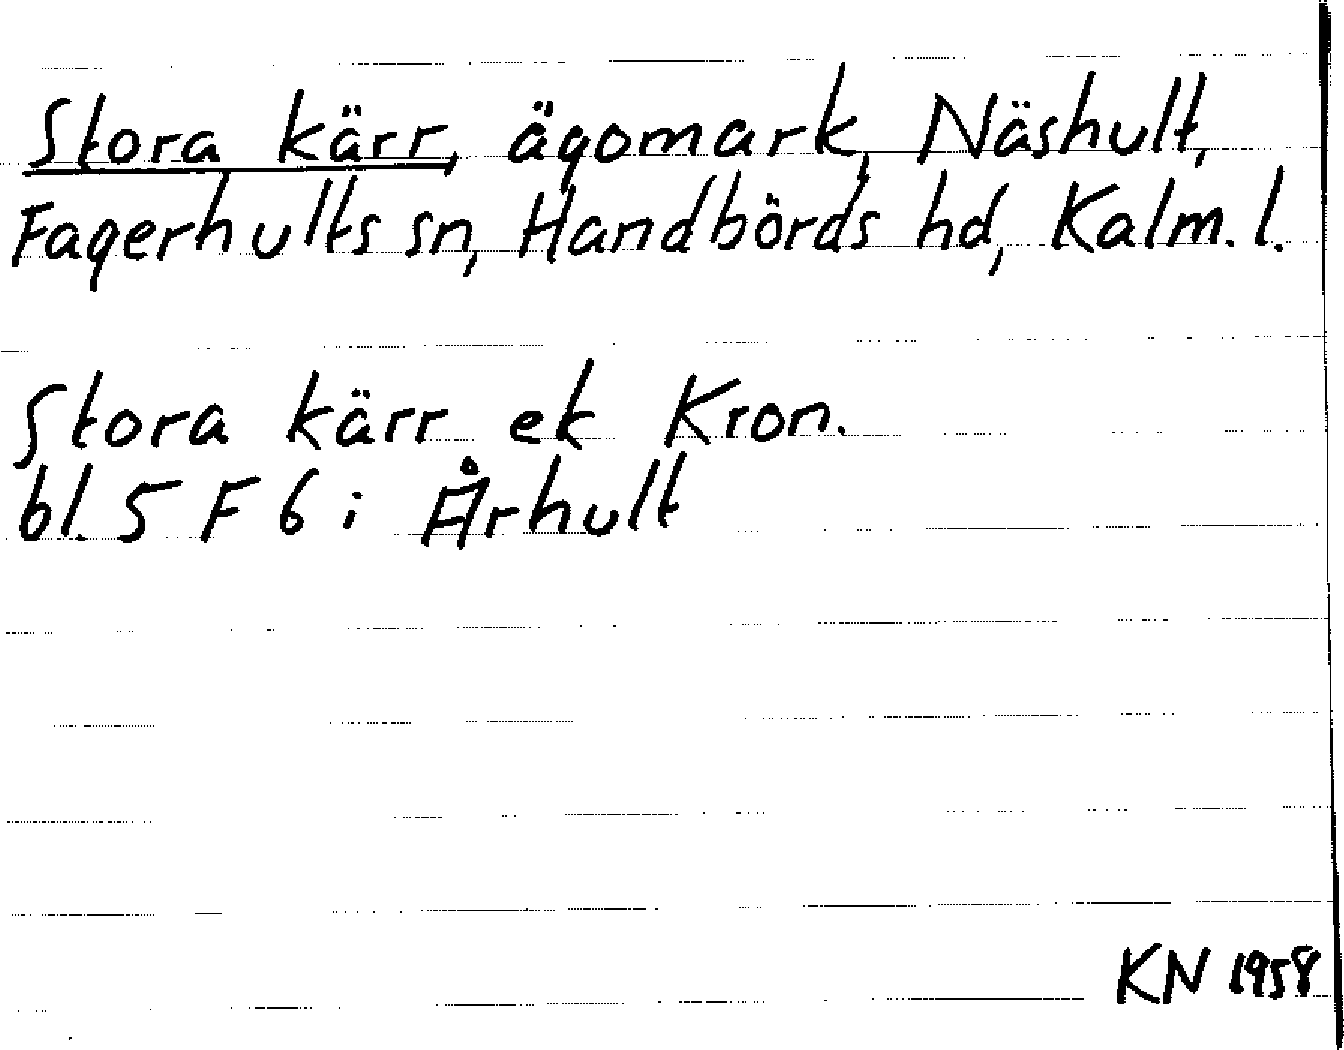 Stora kärr, ägomark, Näshult,
Fagerhults sn, Handbörds hd, Kalm. l.
Stora kärr ek Kron.
bl. 5 F 6 i Århult
KN 1958